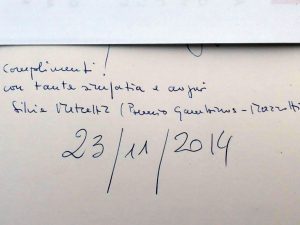 Complimenti!
con tante simpatia e auguri
Silvia (Premio Gambrinus - Mazzotti
23/11/2014